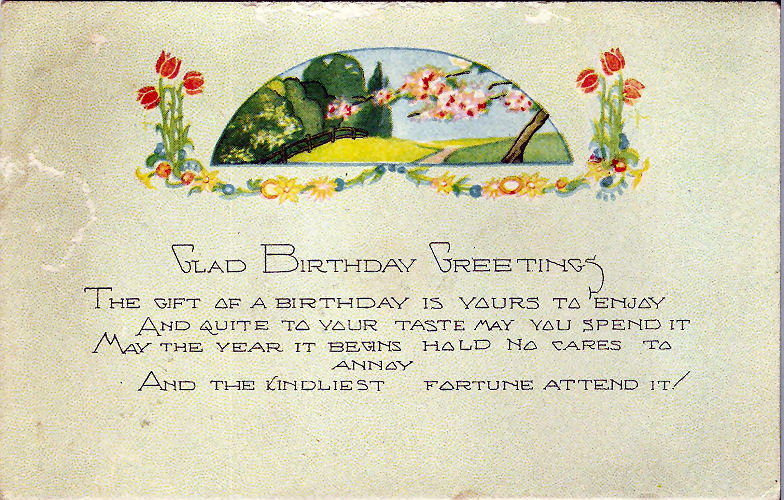 Glad Birthday Greetings
The gift of a birthday is yours to enjoy
And quite to your taste may you spend it
May the year it begins hold no cares to
annoy
And the kindliest fortune attend it!